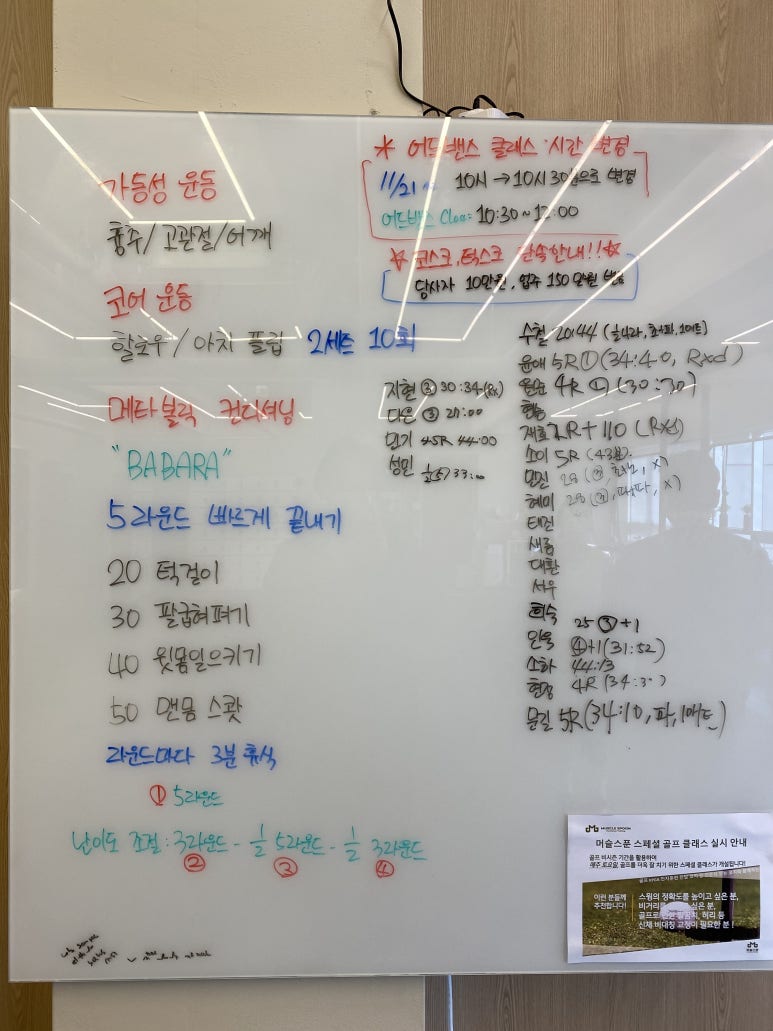 가동성 운동
흉추/고관절/어깨
코어 운동
할로우/아치 플립 2세트 10회
메타볼릭 컨디셔닝
"BABARA"
5라운드 빠르게 끝내기
20 턱걸이
30 팔굽혀펴기
40 윗몸일으키기
50 맨몸 스쾃
라운드마다 3분 휴식
① 5라운드
난이도 조절 : 3라운드 - 1/2 5라운드 - 1/2 3라운드
② ③ ④
* 어드밴스 클래스 시간 변경
11/21 10시 → 10시 30분으로 변경
어드밴스 Class: 10:30 ~ 12:00
☆ 코스크, 턱스크 단속안내!! ☆
당사자 10만원, 업주 150만원
지현 ③ 30:34 (Rx)
다은 ③ 27:00
민기 45R 44:00
성민 33:00
수철 20:44
윤애 5R ① (34:40, Rxd)
4R ① (30:30)
재호 2R+110 (Rxd)
소이 5R (43분)
혜미
태민
새롬
대환
서우
희숙 25 ③+1
인옥 ④+1 (31:52)
소화 44:13
현정 4R (34:30)
문길 5R (34:10, 파, 1매트)
MUSCLE SPOON
머슬스푼 스페셜 골프 클래스 실시 안내
골프 비시즌 기간을 활용하여
매주 토요일 골프를 더욱 잘 치기 위한 스페셜 클래스가 개설됩니다!
이런 분들께
추천합니다!
스윙의 정확도를 높이고 싶은 분,
비거리를 싶은 분,
골프로 인한 팔꿈치, 허리 등
신체 비대칭 교정이 필요한 분!